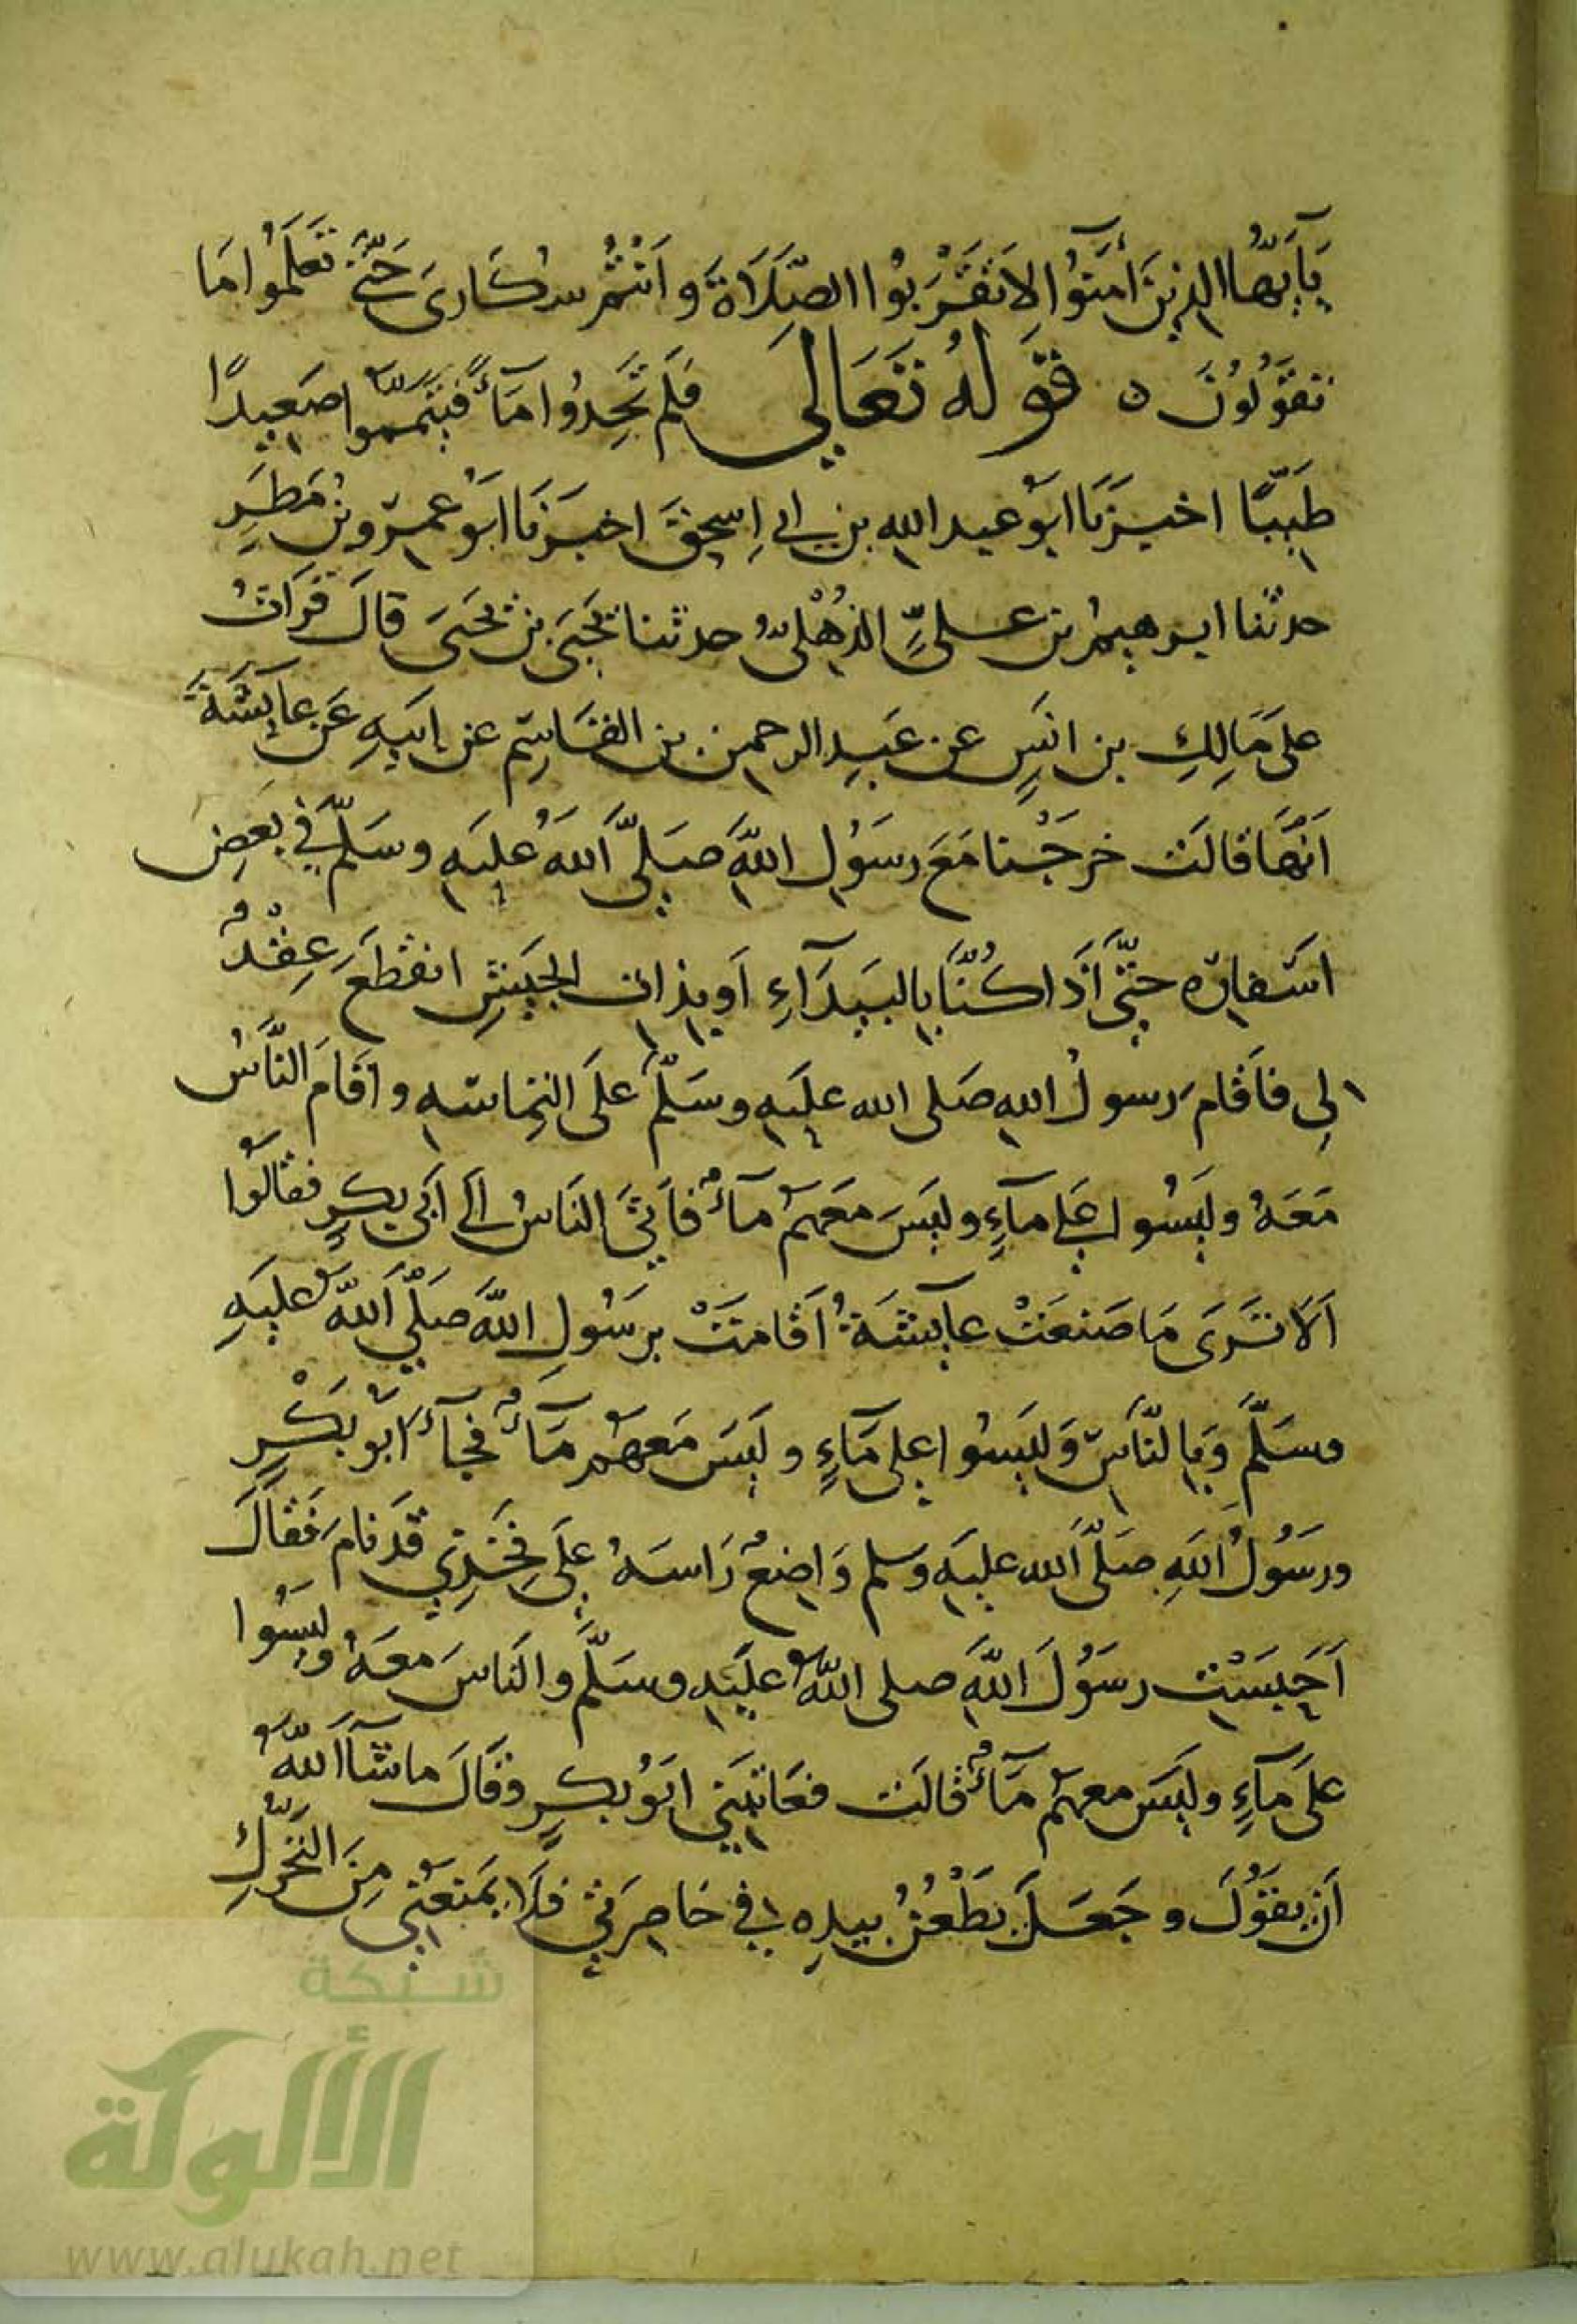 يَآيُّهَا الذِينَ أمَنُوا لاَ تَقْرَبُوا الصَّلَاةَ وَاَنْتُمْ سُكَارَى حَتَّى تَعْلَمُوا مَا
تَقَوُلُوُنَ ٥ قَوَلهُ تَعَالِيَ فَلَم تَجِدُوا مَآءً فَتَيَمَّمَوُا صَعِيدًا
طَيِّبًا اخبَرَنَا ابَوُ عبد الله بن ابي اِسحقَ اخبَرَنَا ابَوُ عَمرٍو بنُ مَطَرٍ
حدثنا ابرهيمُ بن عليٍّ الذُهْليُّ حدثنا يَحَيَى بن يَحَيَى قالَ قَرَاتُ
على مَالِكِ بن انَسٍ عن عَبدِ الرحمن بن القَاسِم عن اَبَيهِ عَن عَايِشَةَ
اَنَّهَا قالَت خرجَنْا مَعَ رسَوُلِ اللهَِّ صَلىَّ اَللهُ عليَهِ وسَلمَّ في بَعَضِ
اسَفارِه حتىَّ اَذَا كُنَّا بالبَيدَآءِ اَو بذات الجيَشِ انقَطعَ عِقْدٌ
لِي فاَقام رَسولُ اللهِ صَلى الله عليَهِ وسَلمَّ علَى التِماسِه واَقامَ النَّاسُ
مَعَهُ وليَسُوا علَي مآءٍ وليَسَ مَعَهُم مآءٌ فاَتىَ الناسُ اليَ اَبي بكرٍ فقالُوا
اَلاَ تَرَى مَا صَنَعَتْ عآيشَةُ اَقامَتْ برَسُولِ اللهَِّ صَلَّى اَللهُّ عليَهِ
وسَلمََّ وَبِالنَّاسِ وَليَسُوا على مَآءٍ وليَسَ مَعهَُم مَآءٌ فجآءَ ابَوُ بَكْرٍ
ورسَوُلُ اللهَِ صَلىَّ اَلله عليَه وسلم وَاضِعٌ رَاسَهُ علَى فَخِذِي قَد نامَ فَقالَ
اَحَبسَْتِ رسَوُلَ اللهََّ صلى اللهُّ عليَهِ وسَلمََّ والناسَ معَهُ وليَسُوا
علَى مآءٍ وليَسَ معهَُم مَآءٌ قالَت فعَاتَبَني ابَوُ بكرٍ وقَالَ ما شآءَ اَللهُّ
اَن يقَوُلَ وجَعَلَ يَطْعُنُ بيدِه في خاصِرَتي فلَا يَمنَعُني مِنَ التَحَرُّكِ
شبكة
الألوكة
www.alukah.net